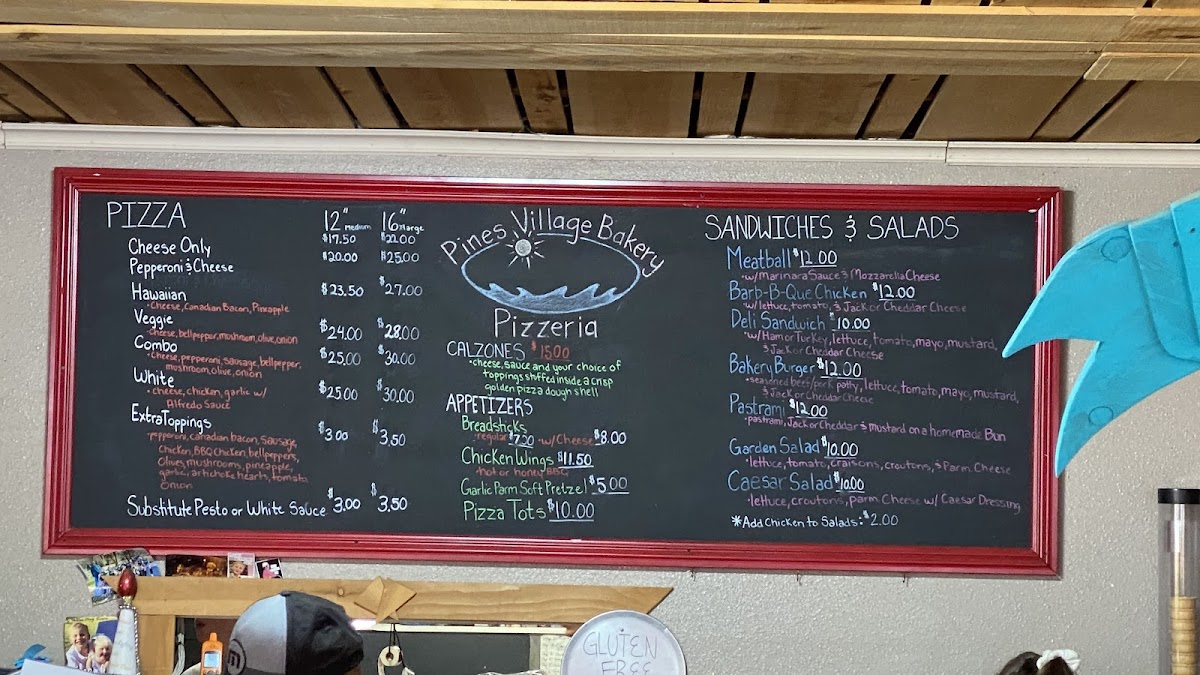 PIZZA
12" Medium 16" xlarge
Cheese Only $17.50 $22.00
Pepperoni & Cheese $20.00 $25.00
Hawaiian $23.50 $27.00
• Cheese, Canadian Bacon, Pineapple
Veggie $24.00 $28.00
• Cheese, bellpepper, mushroom, olive, onion
Combo $25.00 $30.00
• Cheese, pepperoni, sausage, bellpepper,
mushroom, olive, onion
White $25.00 $30.00
• cheese, chicken, garlic w/
Alfredo Sauce
Extra Toppings $3.00 $3.50
• pepperoni, Canadian bacon, Sausage,
Chicken, BBQ Chicken, bellpeppers,
Olives, mushrooms, pineapple,
garlic, artichoke hearts, tomato
Onion
Substitute Pesto or White Sauce $3.00 $3.50
Pines Village Bakery
Pizzeria
CALZONES $15.00
• cheese, sauce and your choice of
toppings stuffed inside a crisp
golden pizza dough shell
APPETIZERS
Breadsticks
• regular $7.00 • w/ Cheese $8.00
Chicken Wings $11.50
• hot or honey BBQ
Garlic Parm Soft Pretzel $5.00
Pizza Tots $10.00
SANDWICHES & SALADS
Meatball $12.00
• w/ Marinara Sauce & Mozzarella Cheese
Barb-B-Que Chicken $12.00
• w/ lettuce, tomato, & Jack or Cheddar Cheese
Deli Sandwich $10.00
• w/ Ham or Turkey, lettuce, tomato, mayo, mustard,
& Jack or Cheddar Cheese
Bakery Burger $12.00
• seasoned beef/pork patty, lettuce, tomato, mayo, mustard,
& Jack or Cheddar Cheese
Pastrami $12.00
• pastrami, Jack or Cheddar & mustard on a homemade Bun
Garden Salad $10.00
• lettuce, tomato, craisons, croutons, & Parm Cheese
Caesar Salad $10.00
• lettuce, croutons, parm Cheese w/ Caesar Dressing
*Add Chicken to Salads: $2.00
GLUTEN
FREE